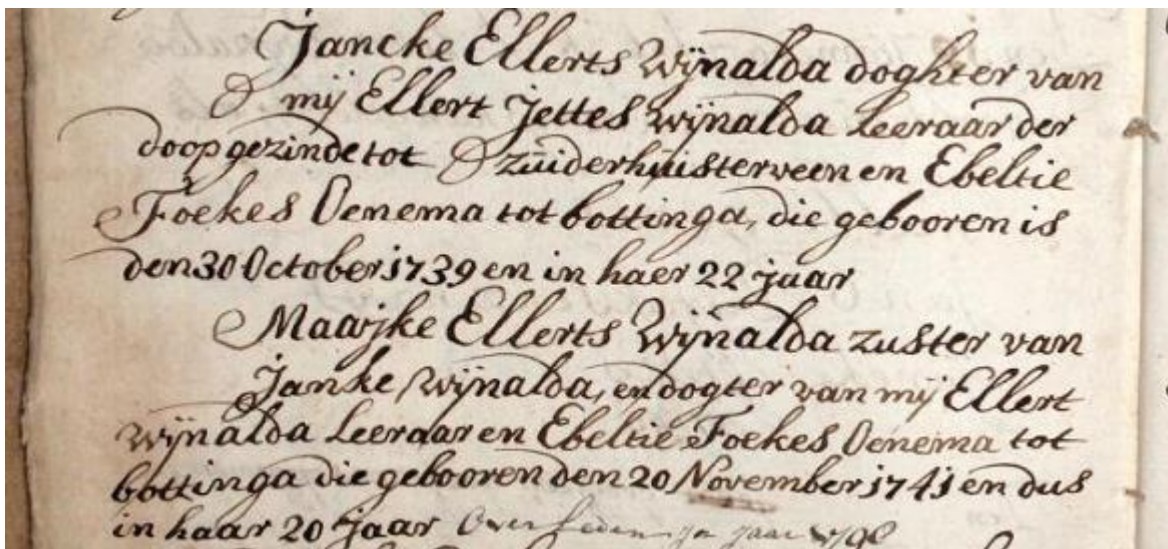 Jancke Ellerts Wijnalda doghter van
mij Ellert Jettes Wijnalda Leeraar der
doopgezinde tot Zuiderhuisterveen en Ebeltie
Foekes Oenema tot bottinga, die gebooren is
den 30 October 1739 en in haer 22 jaar
Maaijke Ellerts Wijnalda zuster van
Janke Wijnalda, en dogter van mij Ellert
Wijnalda Leeraar en Ebeltie Foekes Oenema tot
bottinga die gebooren den 20 November 1741 en dus
in haar 20 jaar Overleden jaar